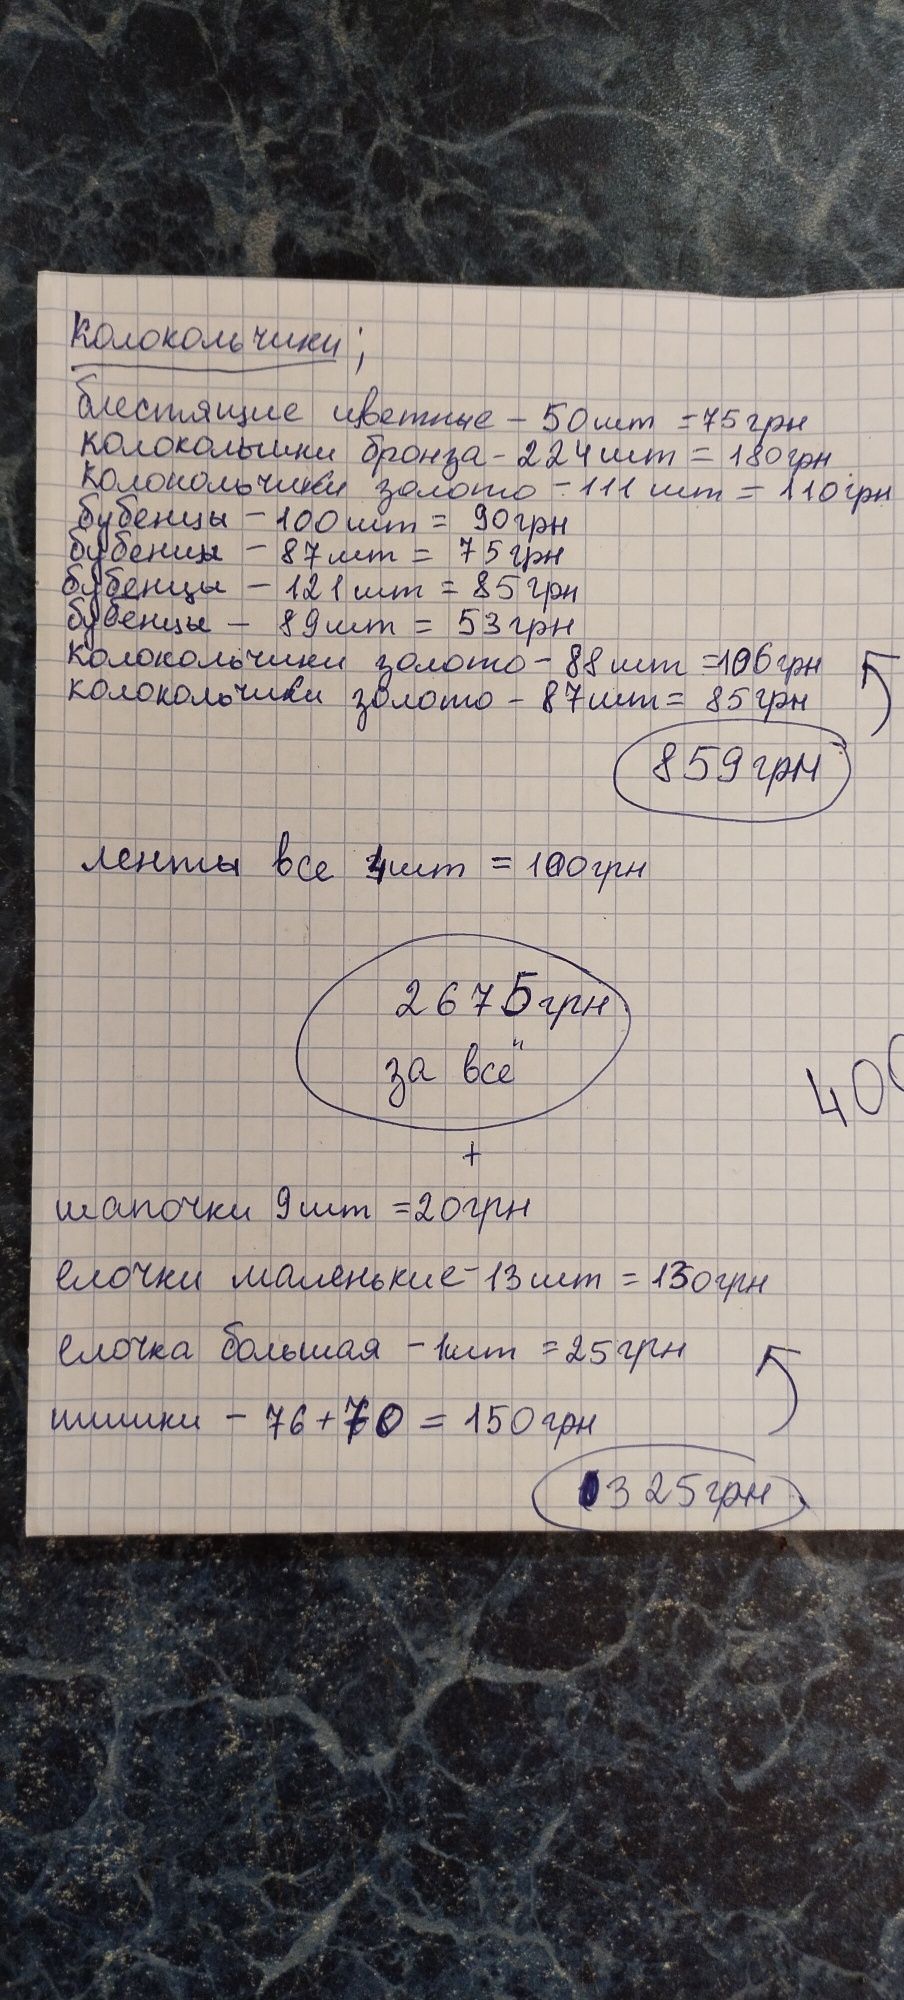 Колокольчики;
блестящие цветные - 50шт = 75грн
колокольчики бронза - 224шт = 180грн
колокольчики золото - 111 шт = 110грн
бубенцы - 100шт = 90грн
бубенцы - 87шт = 75грн
бубенцы - 121шт = 85грн
бубенцы - 89шт = 53грн
колокольчики золото - 88шт = 106грн
колокольчики золото - 87шт = 85грн
859грн
ленты все 4шт = 100грн
2675грн
за всё
400
+
шапочки 9шт = 20грн
елочки маленькие - 13шт = 130грн
елочка большая - 1шт = 25грн
шишки - 76+70 = 150грн
325грн